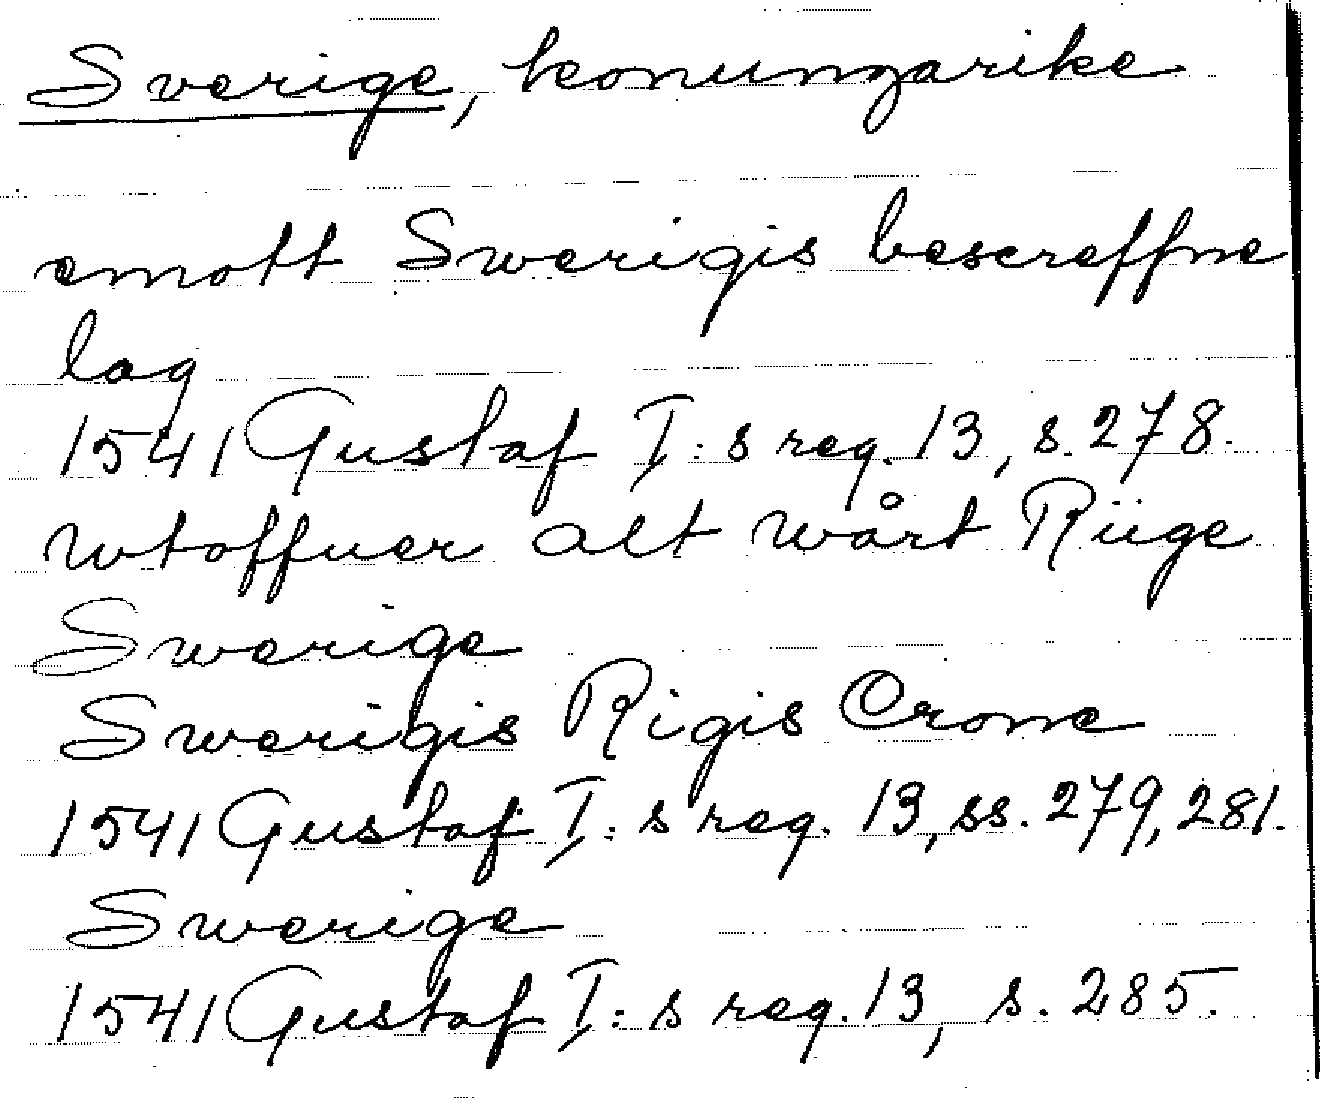 Sverige, konungarike
emott Swerigis bescreffne
lag
1541 Gustaf I:s reg. 13, s. 278.
Wtoffuer alt wårt Rüge
Swerige
Swerigis Rigis Crone
1541 Gustaf I:s reg. 13, ss. 279, 281.
Swerige
1541 Gustaf I:s reg. 13, s. 285.